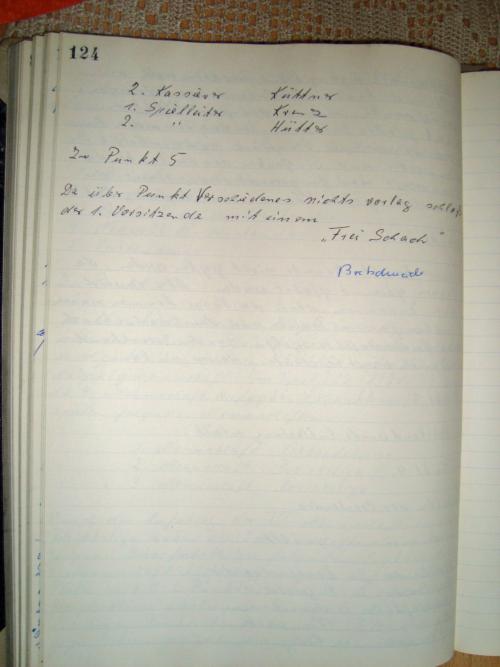 124
2. Kassierer Küttner
1. Spielleiter Krenz
2. " Hütter
Zu Punkt 5
Da über Punkt Verschiedenes nichts vorlag schloß
der 1. Vorsitzende mit einem
„Frei Schach"